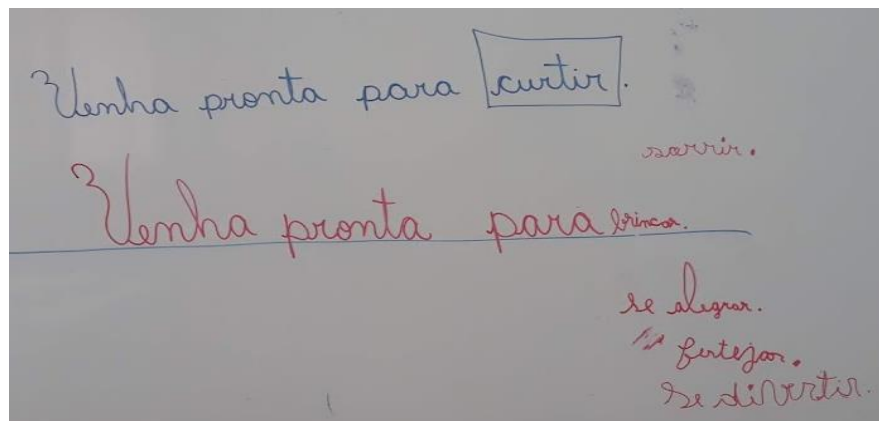 Venha pronta para curtir.
sorrir.
Venha pronta para brincar.
se alegrar.
" festejar.
se divertir.